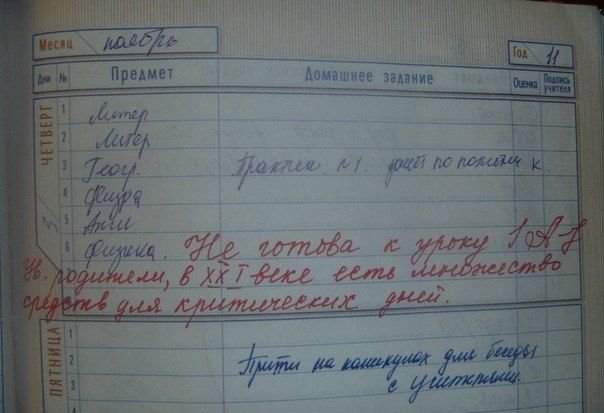 Месяц ноябрь
Год 11
Дни № Предмет Домашнее задание Оценка Подпись учителя
ЧЕТВЕРГ 3
1 Литер
2 Литер
3 Геогр. Практич. №1. по политич. к.
4 Физра
5 Англ
6 Физика. Не готова к уроку!
Ув. родители, в XXI веке есть множество
средств для критических дней.
ПЯТНИЦА
1
2 Прийти на каникулах для беседы
3 с учителями.